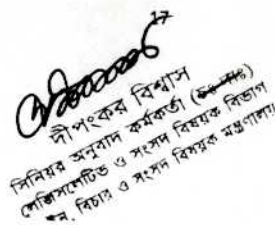 ১৭
দীপংকর বিশ্বাস
সিনিয়র অনুবাদ কর্মকর্তা
লেজিসলেটিভ ও সংসদ বিষয়ক বিভাগ
ন, বিচার ও সংসদ বিষয়ক মন্ত্রণালয়